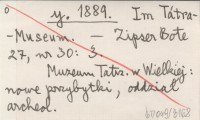 y. 1889. Im Tátra-
Museum. — Zipser Bote
27, nr 30: 3.
Muzeum Tatrz. w Wielkiej:
nowe przybytki, oddział
archeol.